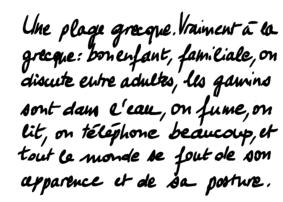 Une plage grecque. Vraiment à la
grecque : bon enfant, familiale, on
discute entre adultes, les gamins
sont dans l'eau, on fume, on
lit, on téléphone beaucoup, et
tout le monde se fout de son
apparence et de sa posture.